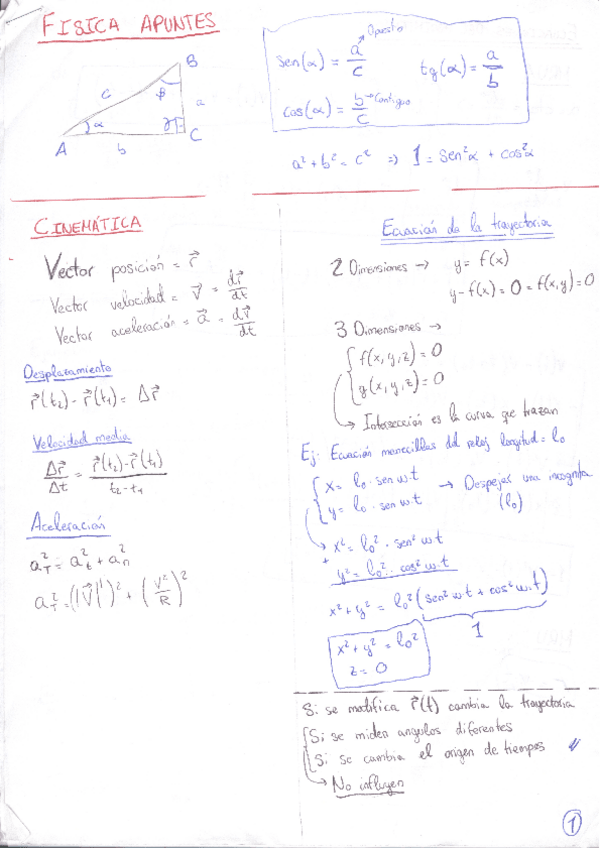 FISICA APUNTES
B
c
β
a
α
γ
A
b
C
sen(α) = a/c → Opuesto
tg(α) = a/b
cos(α) = b/c → Contiguo
a² + b² = c² ⇒ 1 = sen²α + cos²α
CINEMÁTICA
Vector posición = r⃗
Vector velocidad = v⃗ = dr⃗/dt
Vector aceleración = a⃗ = dv⃗/dt
Desplazamiento
r⃗(t₂) - r⃗(t₁) = Δr⃗
Velocidad media
Δr⃗/Δt = r⃗(t₂) - r⃗(t₁) / t₂ - t₁
Aceleración
a²_T = a²_t + a²_n
a²_T = (|v⃗|')² + (v²/R)²
Ecuación de la trayectoria
2 Dimensiones → y = f(x)
y - f(x) = 0 = f(x,y) = 0
3 Dimensiones →
f(x,y,z) = 0
g(x,y,z) = 0
→ Intersección es la curva que trazan
Ej: Ecuación manecillas del reloj longitud = l₀
x = l₀ · sen wt
y = l₀ · sen wt
→ Despejar una incognita
(l₀)
→ x² = l₀² · sen² wt
+ y² = l₀² · cos² wt
x² + y² = l₀² (sen² w.t + cos² w.t)
1
x² + y² = l₀²
z = 0
Si se modifica r⃗(t) cambia la trayectoria
Si se miden angulos diferentes
Si se cambia el origen de tiempos
→ No influyen
1